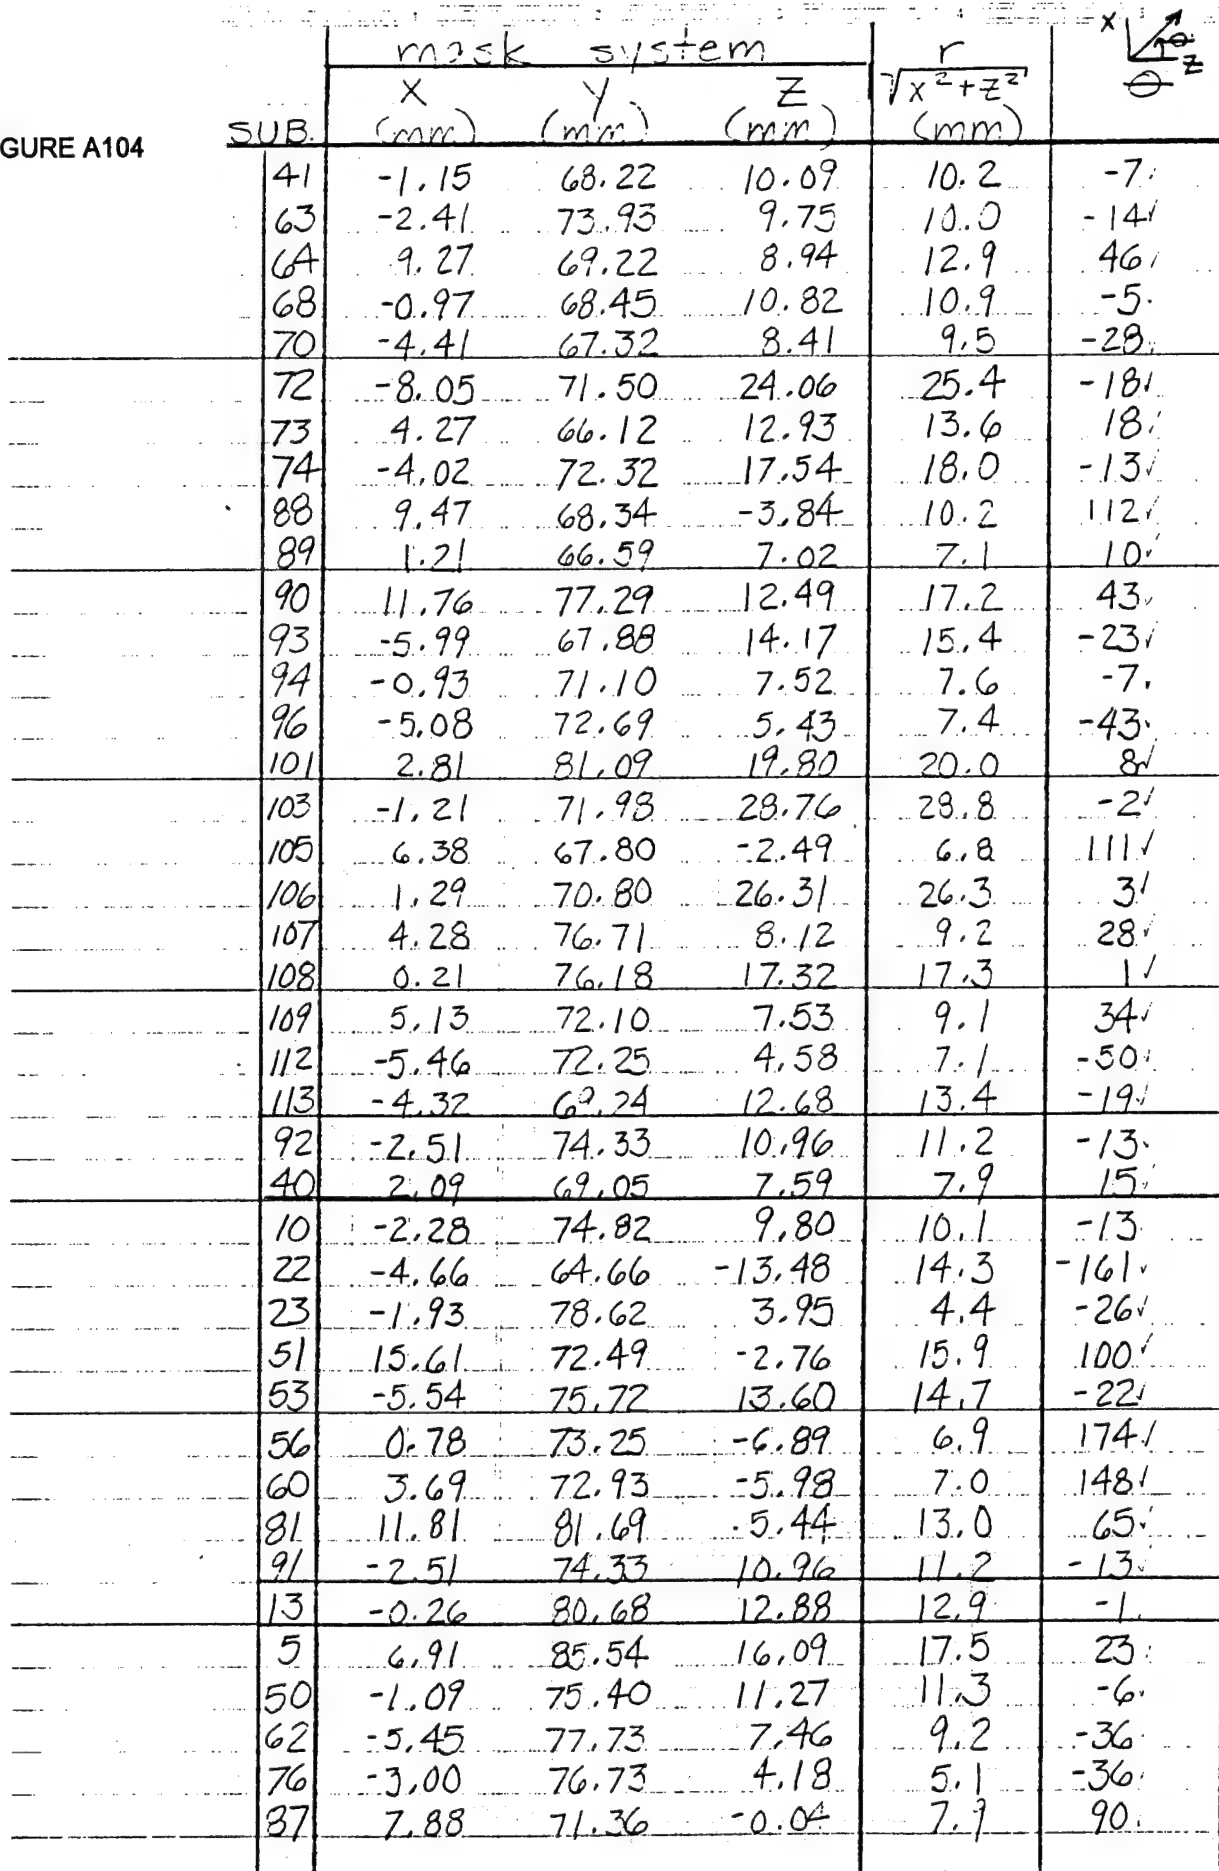 mask system r X Z θ
X Y Z √x²+z² θ
GURE A104 SUB. (mm) (mm) (mm) (mm)
41 -1.15 68.22 10.09 10.2 -7
63 -2.41 73.93 9.75 10.0 -14✓
64 9.27 69.22 8.94 12.9 46
68 -0.97 68.45 10.82 10.9 -5
70 -4.41 67.32 8.41 9.5 -28
72 -8.05 71.50 24.06 25.4 -18✓
73 4.27 66.12 12.93 13.6 18
74 -4.02 72.32 17.54 18.0 -13✓
88 9.47 68.34 -3.84 10.2 112✓
89 1.21 66.59 7.02 7.1 10✓
90 11.76 77.29 12.49 17.2 43
93 -5.99 67.88 14.17 15.4 -23✓
94 -0.93 71.10 7.52 7.6 -7
96 -5.08 72.69 5.43 7.4 -43
101 2.81 81.09 19.80 20.0 8✓
103 -1.21 71.98 28.76 28.8 -2✓
105 6.38 67.80 -2.49 6.8 111✓
106 1.29 70.80 26.31 26.3 3✓
107 4.28 76.71 8.12 9.2 28✓
108 0.21 76.18 17.32 17.3 1✓
109 5.13 72.10 7.53 9.1 34✓
112 -5.46 72.25 4.58 7.1 -50
113 -4.32 69.24 12.68 13.4 -19✓
92 -2.51 74.33 10.96 11.2 -13
40 2.09 69.05 7.59 7.9 15
10 -2.28 74.82 9.80 10.1 -13
22 -4.66 64.66 -13.48 14.3 -161
23 -1.93 78.62 3.95 4.4 -26✓
51 15.61 72.49 -2.76 15.9 100✓
53 -5.54 75.72 13.60 14.7 -22✓
56 0.78 73.25 -6.89 6.9 174✓
60 3.69 72.93 -5.98 7.0 148✓
81 11.81 81.69 5.44 13.0 65
91 -2.51 74.33 10.96 11.2 -13
13 -0.26 80.68 12.88 12.9 -1
5 6.91 85.54 16.09 17.5 23
50 -1.09 75.40 11.27 11.3 -6
62 -5.45 77.73 7.46 9.2 -36
76 -3.00 76.73 4.18 5.1 -36
87 7.88 71.36 -0.04 7.9 90